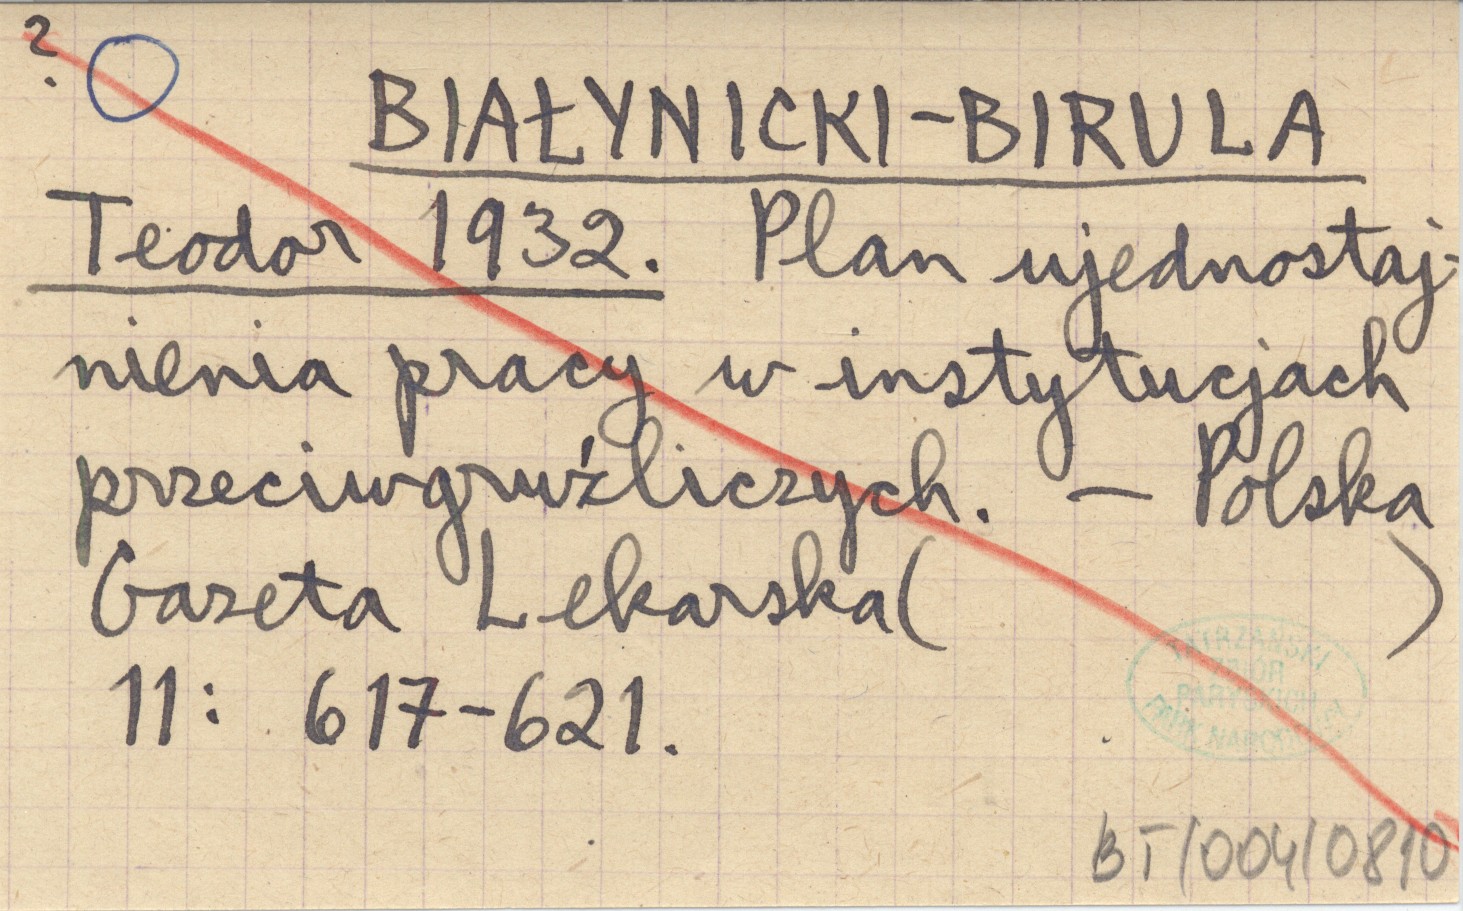 ?
BIAŁYNICKI-BIRULA
Teodor 1932. Plan ujednostaj-
nienia pracy w instytucjach
przeciwgruźliczych. — Polska
Gazeta Lekarska( )
11: 617-621.
TATRZAŃSKI
ZBIÓR
PARYSKICH
PARK NARODOWY
BT/004/0810